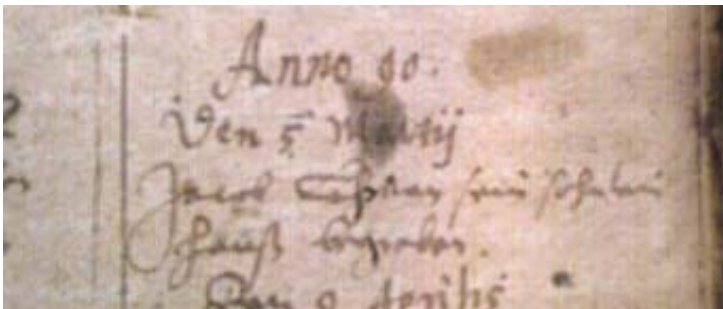 Anno 90.
Den 5 Martij
Jacob sein söhnlein
Hanß begraben.
Den 8 Aprilis